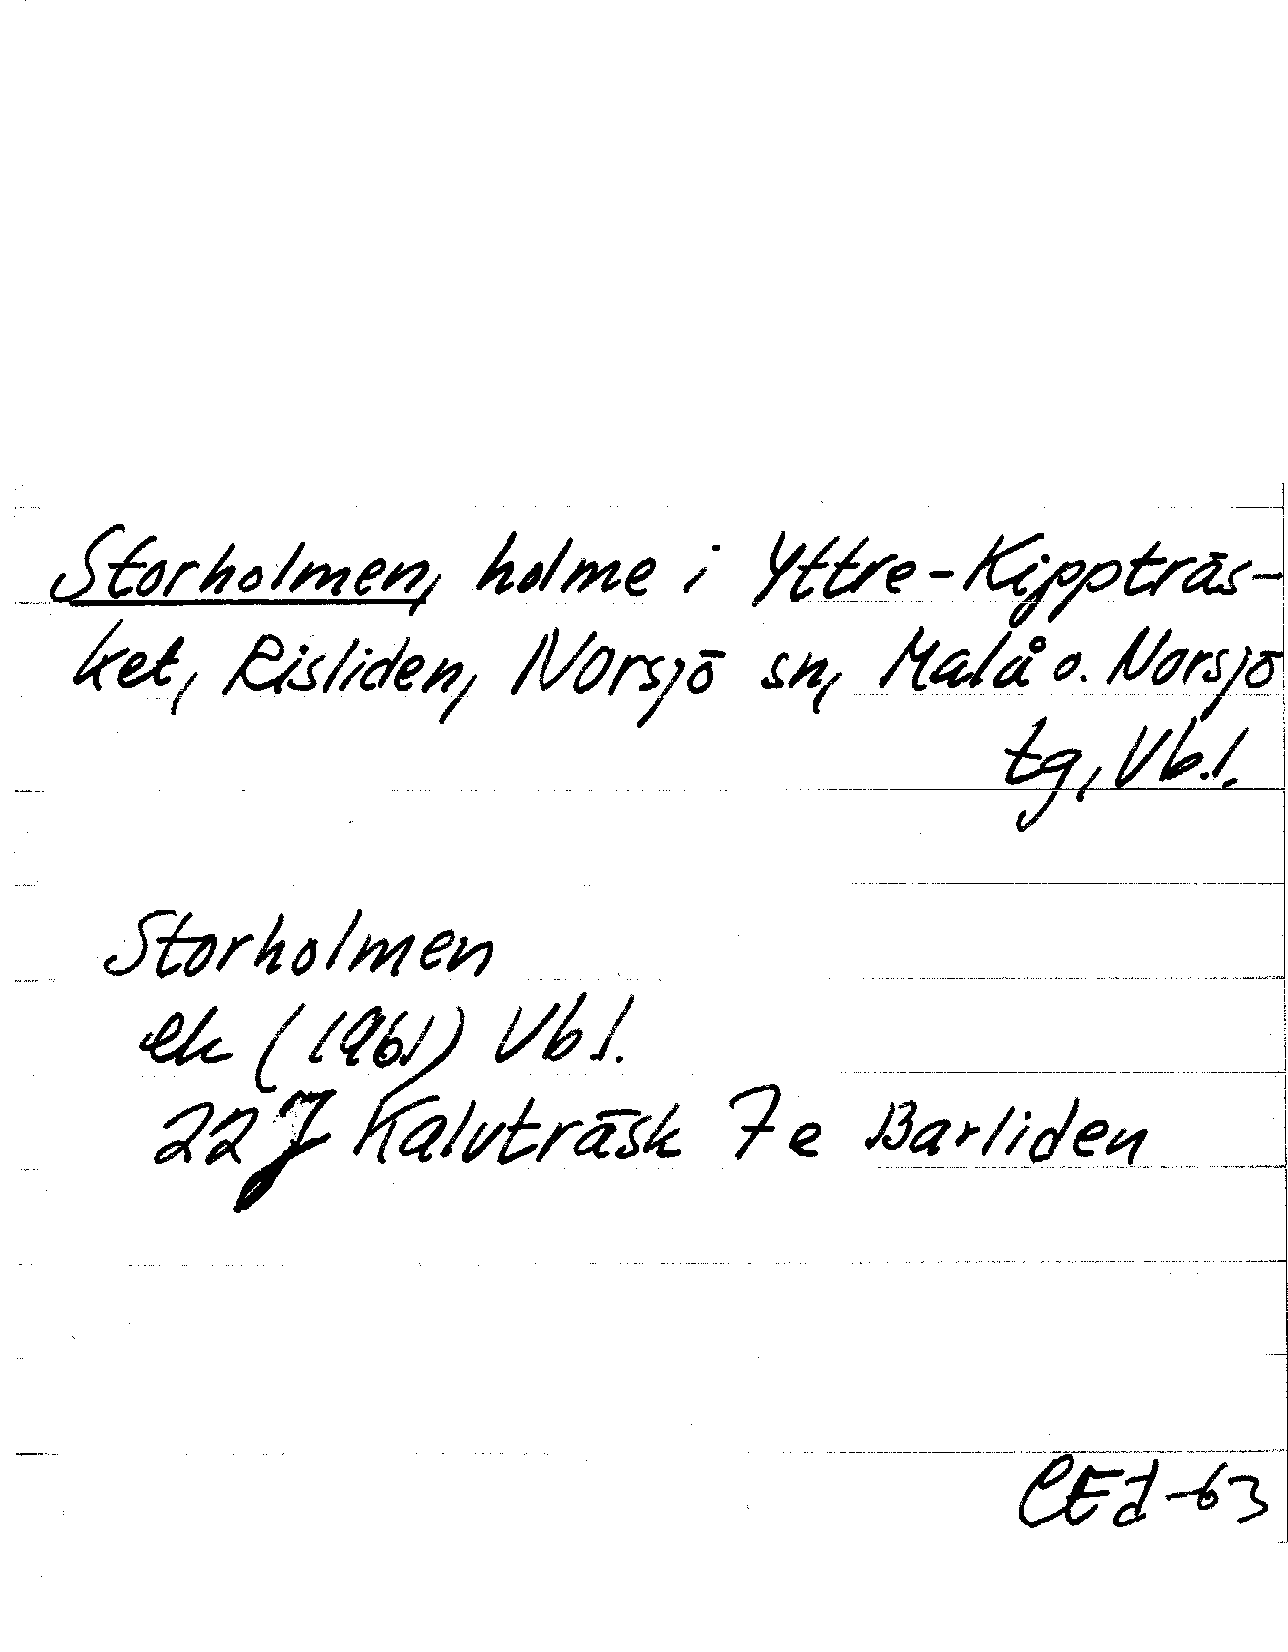 Storholmen, holme i Yttre-Kippträs-
ket, Risliden, Norsjö sn, Malå o. Norsjö
tg, Vb.l.
Storholmen
ek (1961) Vb l.
22 J Kalvträsk 7 e Barliden
CEd -63